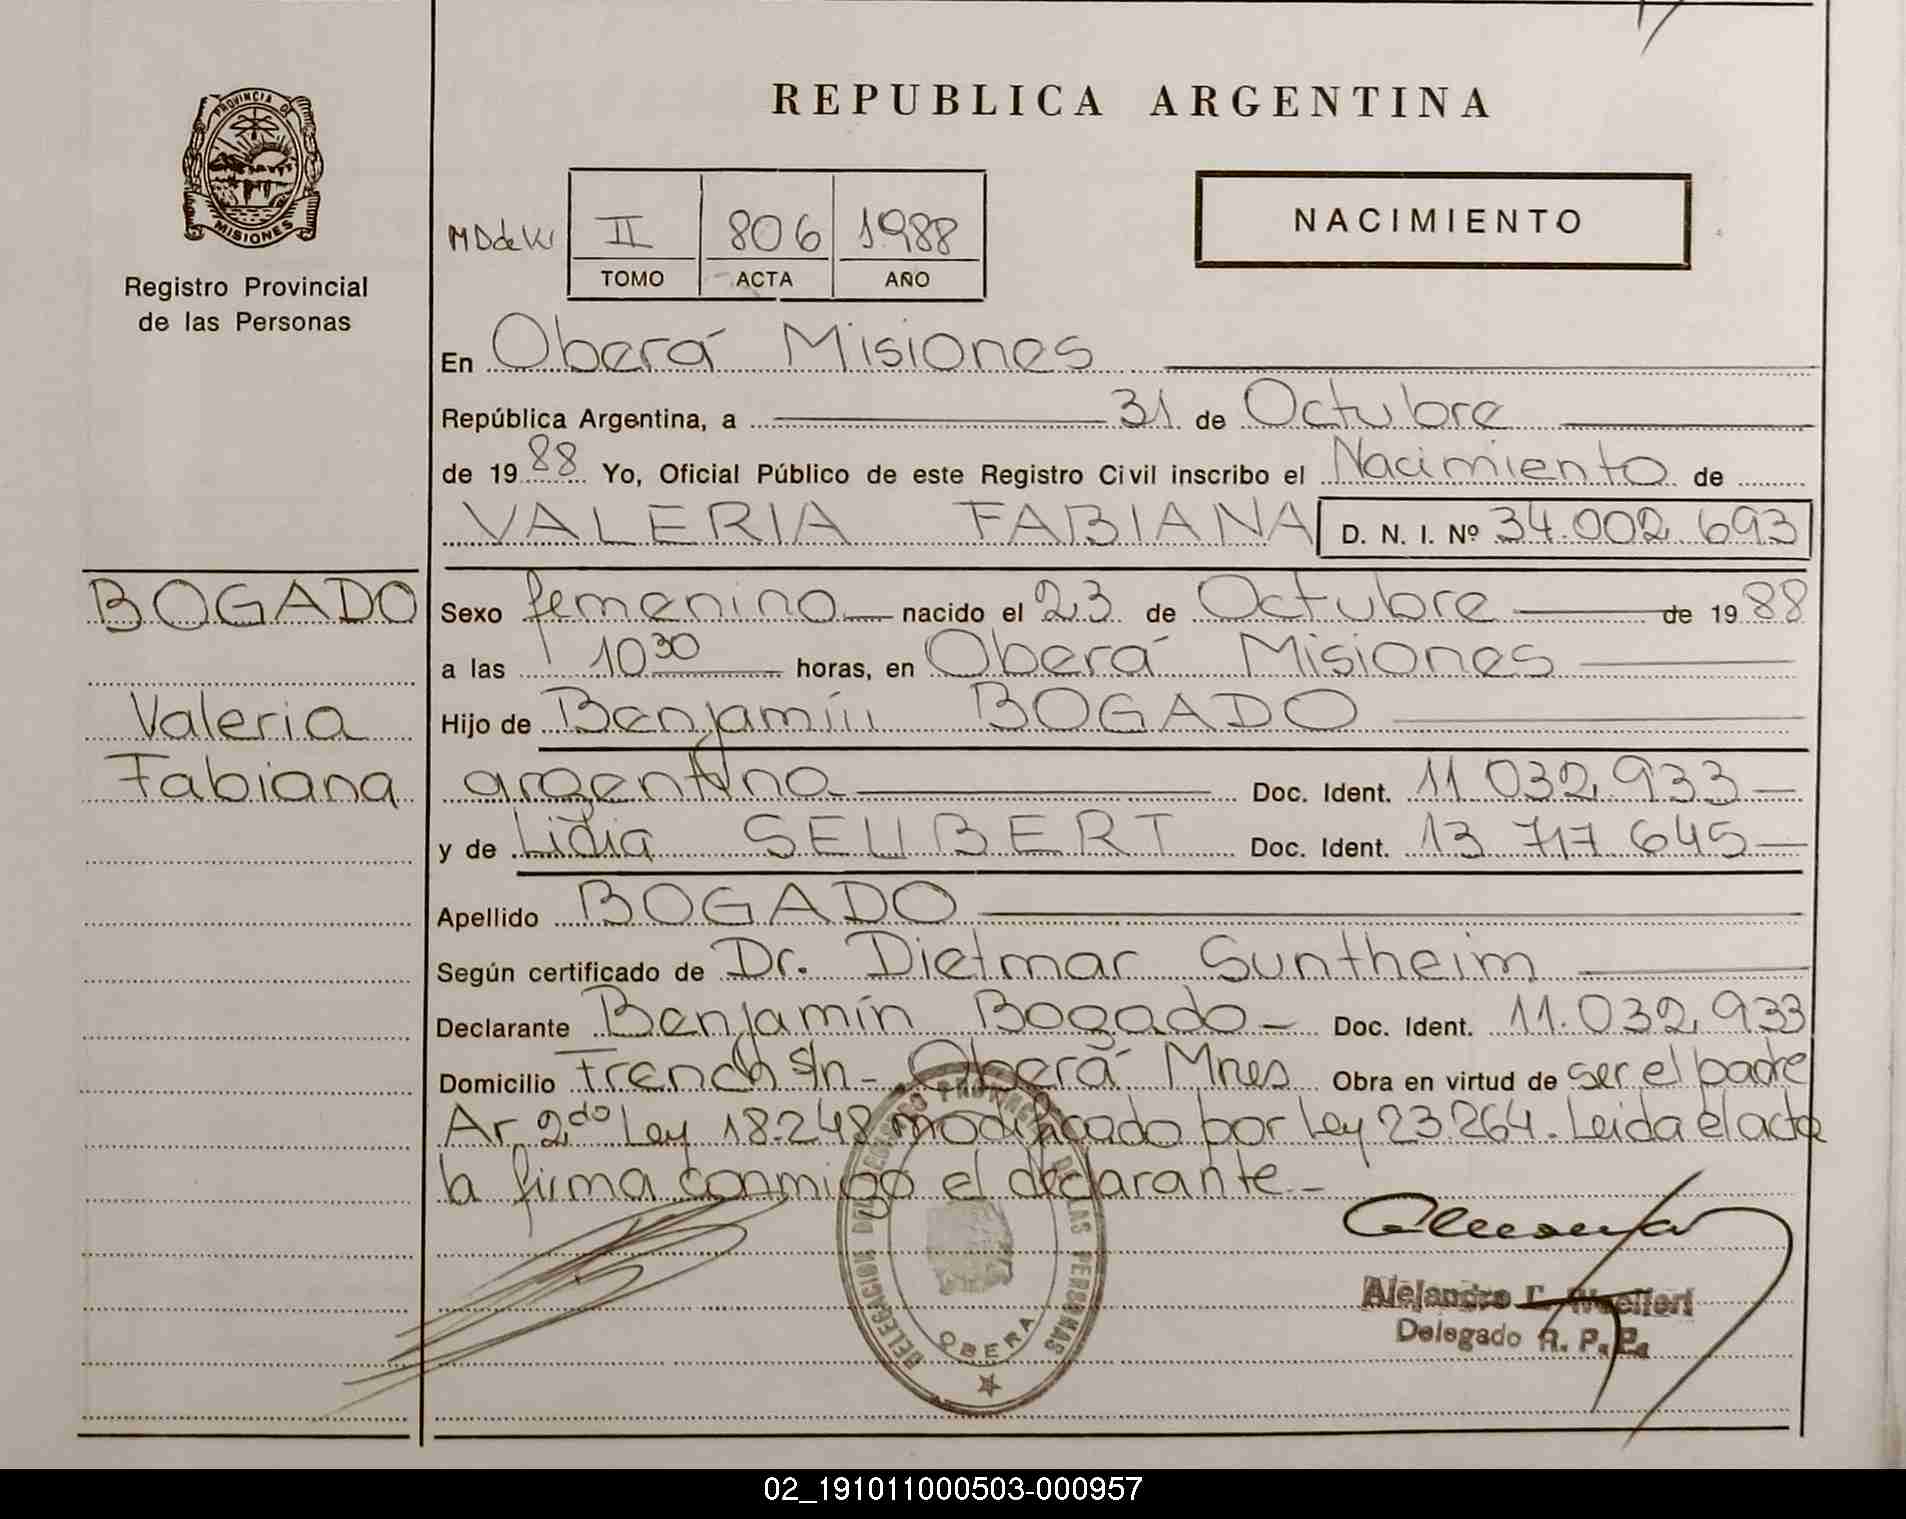 REPUBLICA ARGENTINA
PROVINCIA DE
MISIONES
Registro Provincial
de las Personas
II 806 1988
TOMO ACTA AÑO
NACIMIENTO
En Oberá Misiones
República Argentina, a 31 de Octubre
de 1988 Yo, Oficial Público de este Registro Civil inscribo el Nacimiento de
VALERIA FABIANA D. N. I. Nº 34.002.693
BOGADO
Valeria
Fabiana
Sexo femenino nacido el 23 de Octubre de 1988
a las 10 30 horas, en Oberá Misiones
Hijo de Benjamín BOGADO
argentino Doc. Ident. 11.032.933
y de Lidia SEUBERT Doc. Ident. 13 717 645
Apellido BOGADO
Según certificado de Dr. Dietmar Suntheim
Declarante Benjamín Bogado - Doc. Ident. 11.032.933
Domicilio French s/n - Oberá Mnes Obra en virtud de ser el padre
Ar. 2do Ley 18.248 modificado por Ley 23.264. Leida el acta
la firma conmigo el declarante. -
DELEGACION DEL REGISTRO PROVINCIAL DE LAS PERSONAS
OBERA
Alejandro
Delegado R. P. P.
02_191011000503-000957